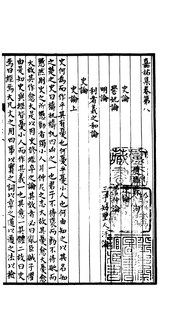 嘉祐集卷第八
史論
嚳妃論
三子知聖人汙論
明論
利者義之和論
史論
史論上
史何為而作乎其有憂也何憂乎憂小人也何由知之以其名知
之楚之史曰檮杌檮杌四凶之一也君子不待褒而勸不待貶而
懲然則史之所懲勸者獨小人耳仲尼之志大故其憂愈大憂愈
大故其作愈大是以因史修經卒之論其效者必曰亂臣賊子懼
由是知史與經皆憂小人而作其義一也其義一其體二故曰史
焉曰經焉大凡文之用四事以實之詞以章之道以通之法以檢